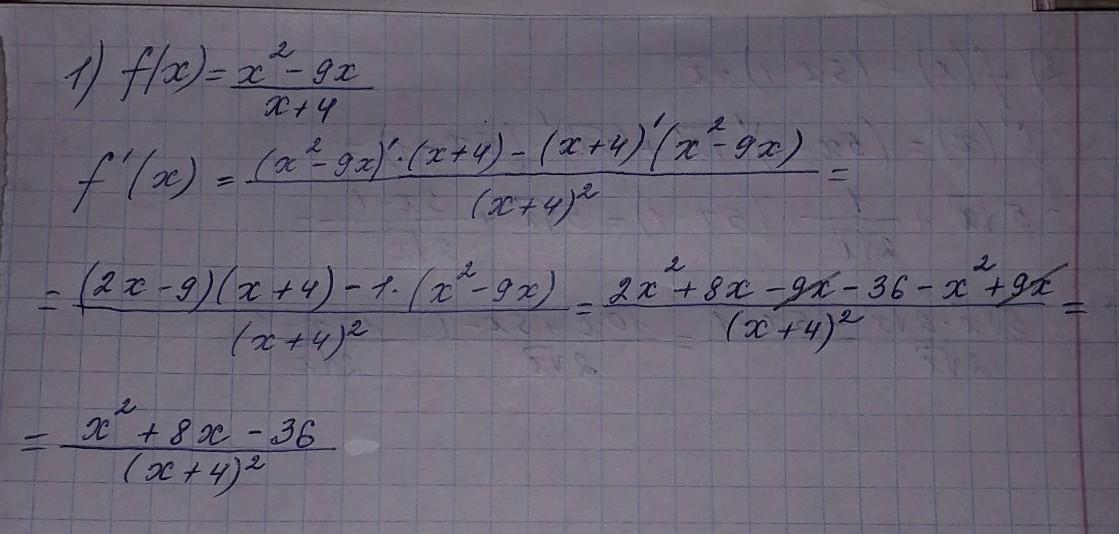 1) f(x) = (x² - 9x)/(x+4)
f'(x) = ((x² - 9x)' · (x+4) - (x+4)' (x² - 9x))/(x+4)² =
= ((2x - 9)(x+4) - 1 · (x² - 9x))/(x+4)² = (2x² + 8x - 9x - 36 - x² + 9x)/(x+4)² =
= (x² + 8x - 36)/(x+4)²